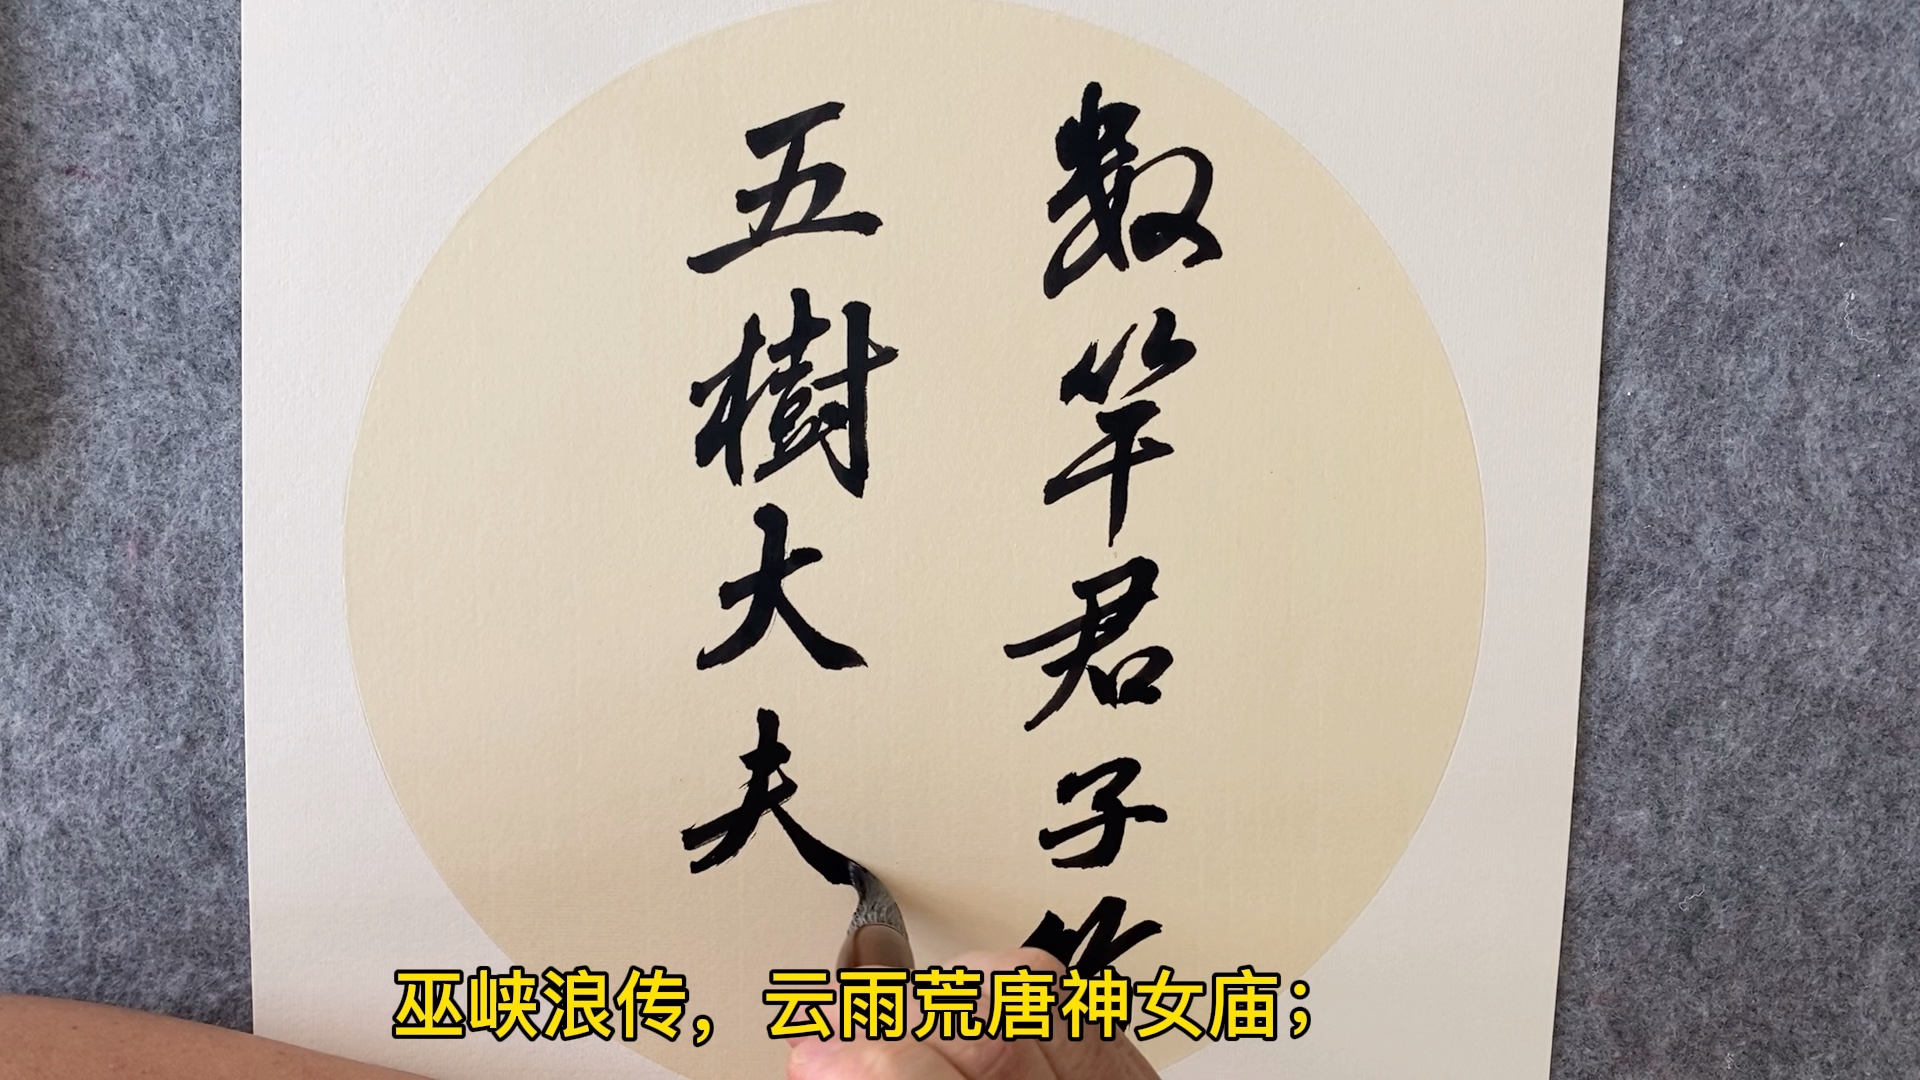 数竿君子竹
五樹大夫
巫峡浪传，云雨荒唐神女庙；